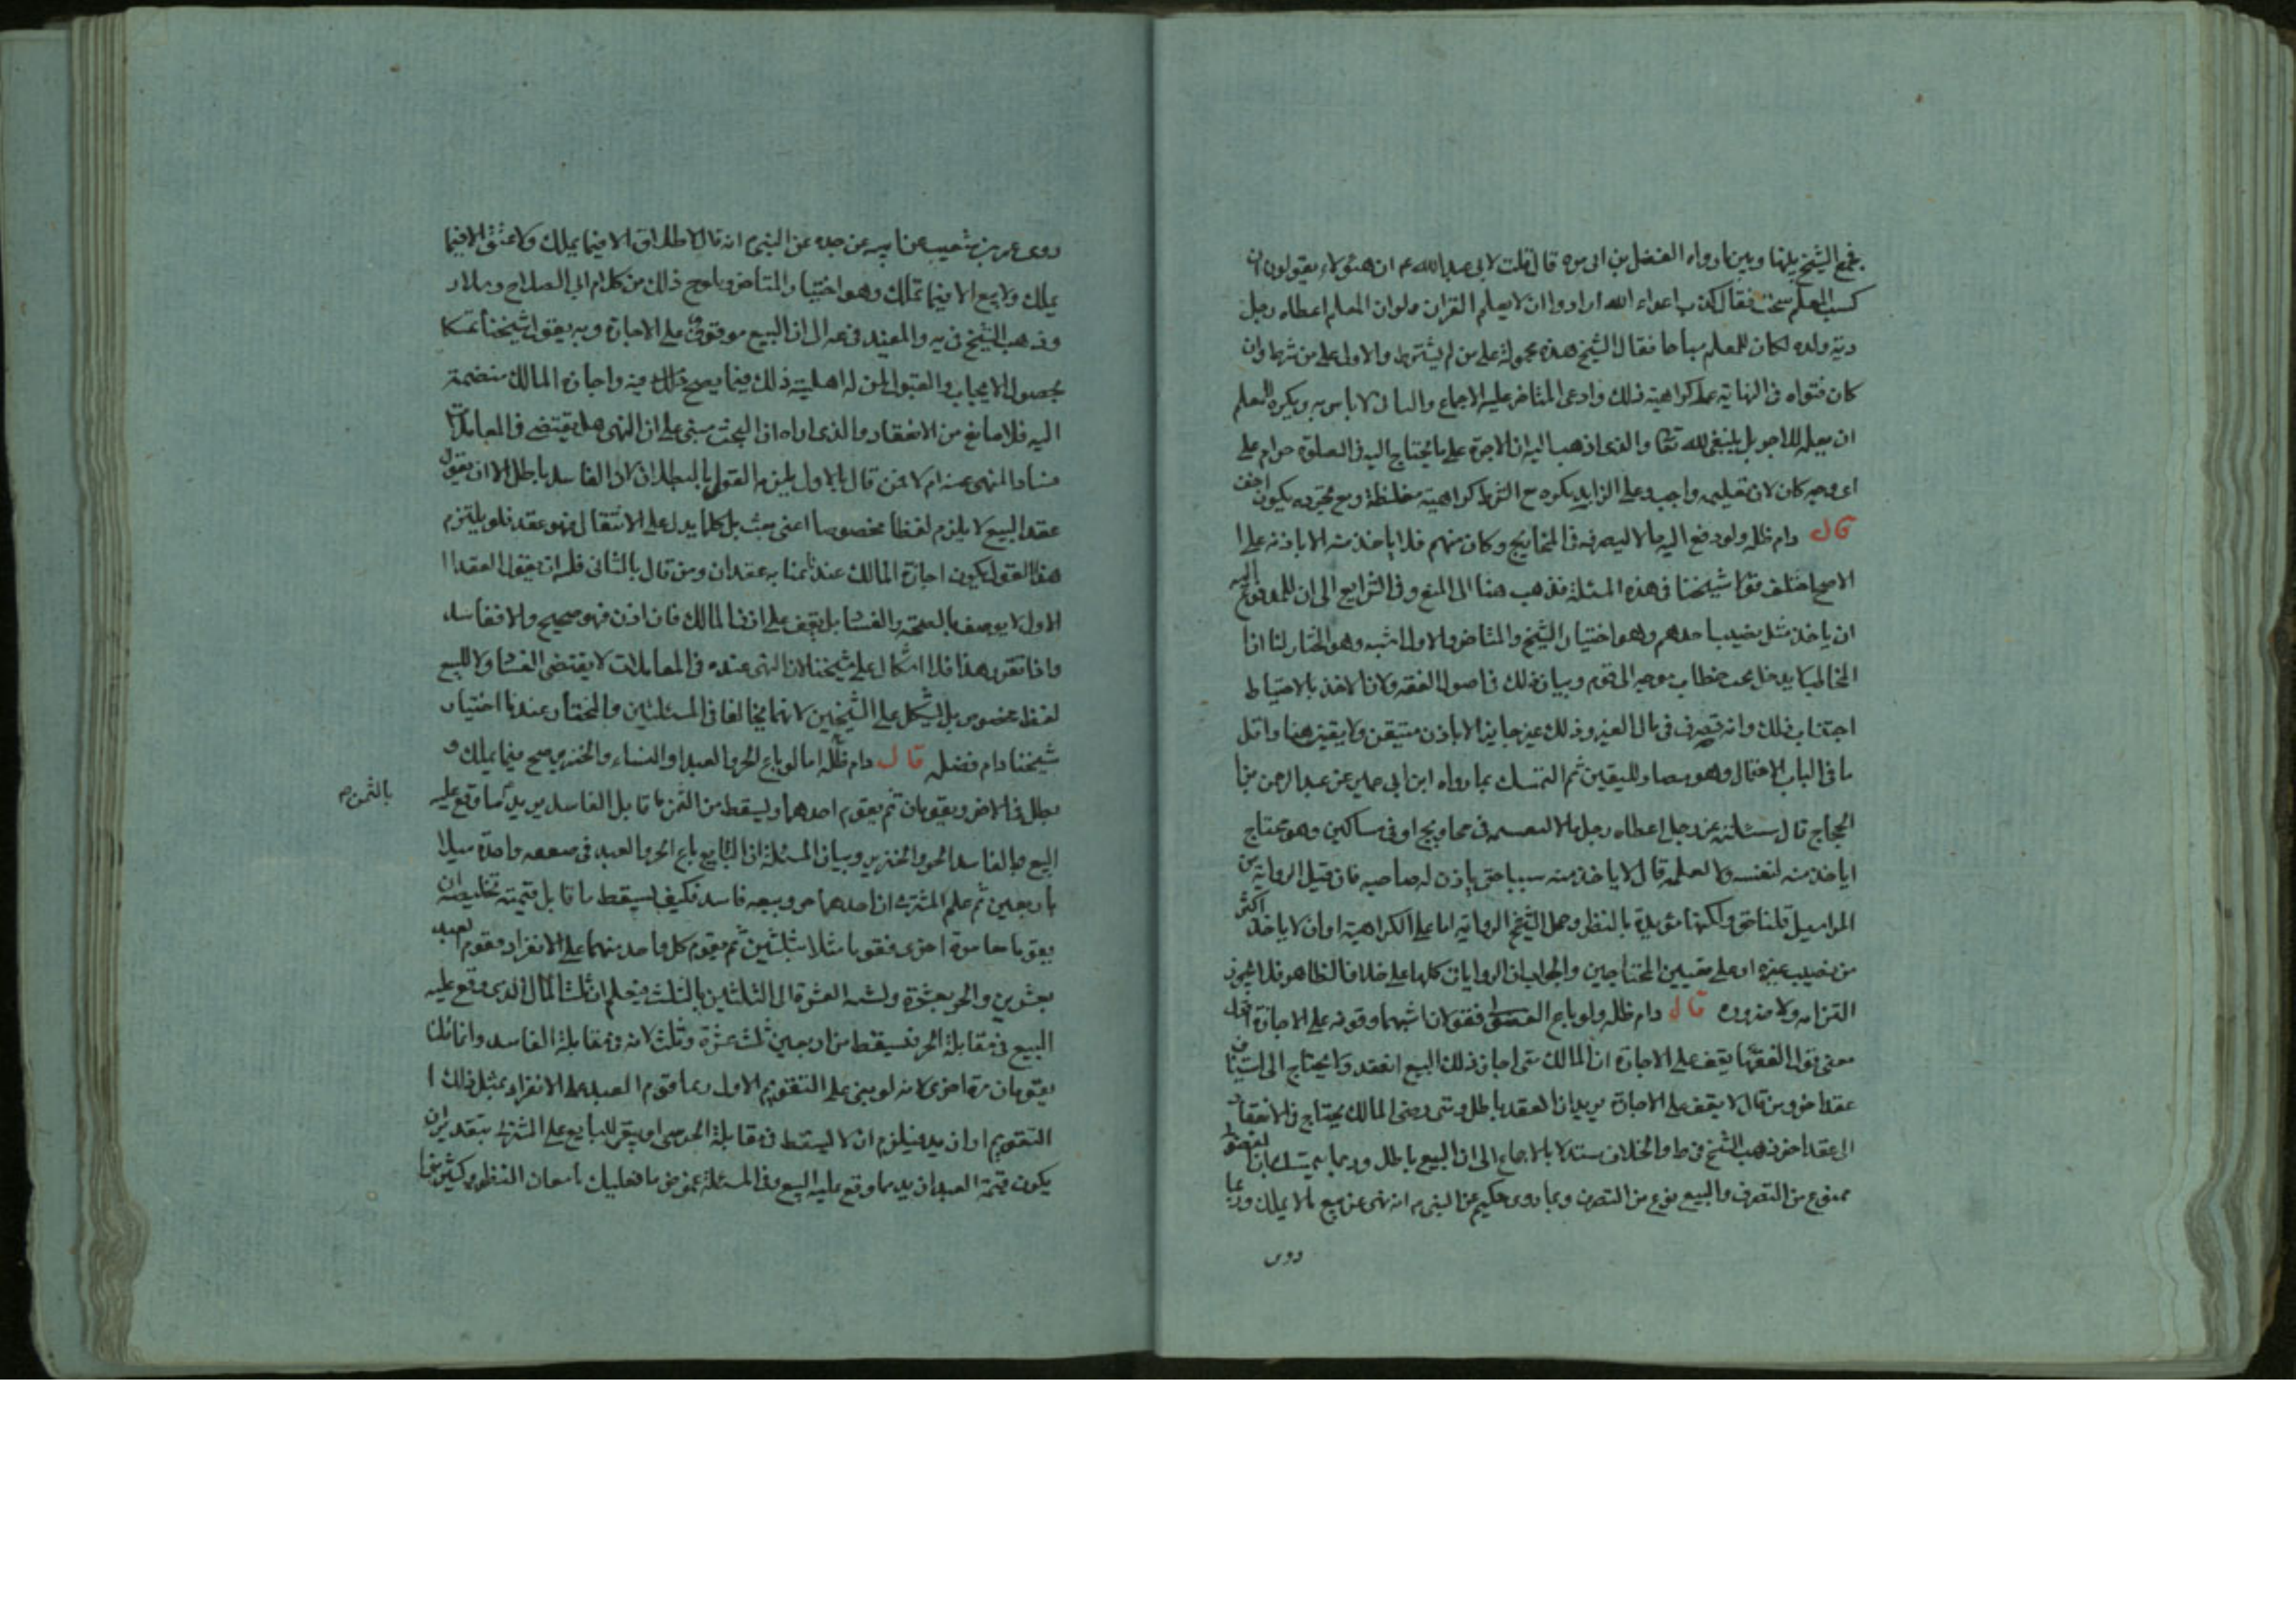 فجمع الشيخ بينها وبين ما رواه الفضل بن ابى قره قال قلت لابى عبدالله ع ان هؤلاء يقولون ان
كسب المعلم سحت فقال كذب اعداء الله ارادوا ان لا يعلم القران ولو ان المعلم اعطاه رجل
دية ولده لكان للمعلم مباحا فقال الشيخ هذه محمولة على من لم يشترط والاول على من شرط وان
كان فتواه فى النهاية على كراهية ذلك وادعى المتاخر عليه الاجماع وقال لا باس به ويكره للمعلم
ان يعلم للاجر بل ينبغى لله تعا والذى اذهب اليه ان الاجرة على ما يحتاج اليه فى الصلوة حرام على
اى وجه كان لان تعليمه واجب وعلى الزايد يكره مع الشرط كراهية مغلظة ومع تجرده يكون اخف
قال دام ظله ولو دفع اليه مالا ليصرفه فى المحاويج وكان منهم فلا ياخذ منه الا باذنه على ا
الاصح اختلف قولا شيخنا فى هذه المسئلة فذهب هنا الى المنع وفى الشرايع الى ان للمدفوع اليه
ان ياخذ مثل نصيب احدهم وهو اختيار الشيخ والمتاخر والاول اشبه وهو المختار لنا ان ا
المخاطب لا يدخل تحت خطاب موجه الى قوم وبيان ذلك فى اصول الفقه ولان الاخذ بالاحتياط
اجتناب ذلك وانه تصرف فى مال الغير وذلك غير جايز الا باذن متيقن ولا يقين هنا واقل
ما فى الباب الاحتمال وهو مضاد لليقين ثم التمسك بما رواه ابن ابى عمير عن عبدالرحمن بن ا
الحجاج قال سئلته عن رجل اعطاه رجل مالا ليقسمه فى محاويج او فى مساكين وهو محتاج
اياخذ منه لنفسه ولا يعلمه قال لا ياخذ منه شيئا حتى ياذن له صاحبه فان قيل الرواية من
المراسيل قلنا حق ولكنها مؤيدة بالنظر وحمل الشيخ الرواية اما على الكراهية او ان لا ياخذ اكثر
من نصيب غيره او على تعيين المحتاجين والجواب ان الروايات كلها على خلاف الظاهر فلا يجوز
التزامه ولا ضروره قال دام ظله ولو باع الفضولى فقولان اشبهما وقوفه على الاجازة اقول
معنى قول الفقها يقف على الاجازة ان المالك متى اجاز ذلك البيع انعقد ولا يحتاج الى استيناف
عقد اخر ومن قال لا يقف على الاجازة يريد ان العقد باطل ومتى رضى المالك يحتاج فى الانعقاد
الى عقد اخر فذهب الشيخ فى ط والخلاف مستدلا بالاجماع الى ان البيع باطل وربما يتمسك بان الفضولى
ممنوع من التصرف والبيع نوع من التصرف وبما روى حكيم عن النبى ص انه نهى عن بيع ما لا يملك وربما
روى
روى عمر بن شعيب عن ابيه عن جده عن النبى ص انه قال لا طلاق الا فيما يملك ولا عتق الا فيما
يملك ولا بيع الا فيما تملك وهو اختيار المتاخر ويلوح ذلك من كلام ابى الصلاح وسلار
وذهب الشيخ فى يه والمفيد فى عه الى ان البيع موقوف على الاجازة وبه يقول شيخنا تمسكا
بحصول الايجاب والقبول لمن له اهلية ذلك فيما يصح ذلك فيه واجازة المالك منضمة
اليه فلا مانع من الانعقاد والذى اراه ان البحث مبنى على ان النهى هل يقتضى فى المعاملات
فساد المنهى عنه ام لا فمن قال بالاول يلزمه القول بالبطلان لان الفاسد باطل الا ان يقول
عقد البيع لا يلزم لفظا مخصوصا اعنى بعت بل كلما يدل على الانتقال فهو عقد فلو يلتزم
هذا القول يكون اجازة المالك عندنا بمثابه عقد ثان ومن قال بالثانى فله ان يقول العقد ا
الاول لا يوصف بالصحة والفساد بل يقف على اذن المالك فان اذن فهو صحيح والا ففاسد
واذا تقرر هذا فلا اشكال على شيخنا لان النهى عنده فى المعاملات لا يقتضى الفساد ولا للبيع
لفظ مخصوص بل يشكل على الشيخين لانهما يخالفا فى المسئلتين والمختار عندنا اختيار
شيخنا دام فضله قال دام ظله اما لو باع الحر والعبد او الشاة والخنزير صح فيما يملك و
بطل فى الاخر ويقومان ثم يقوم احدهما ويسقط من الثمن ما قابل الفاسد يريد بما وقع عليه
بالثمن م
البيع وبالفاسد الحر والخنزير وبيان المسئلة ان البايع باع الحر والعبد فى صفقه واحدة مثلا
باربعين ثم علم المشترى ان احدهما حر وبيعه فاسد فكيف يسقط ما قابل قيمته تخليصه ان
يقوما معا مرة اخرى فقوما مثلا بثلثين ثم يقوم كل واحد منهما على الانفراد فقوم العبد
بعشرين والحر بعشرة ونسبه العشرة الى الثلثين بالثلث فيعلم ان ثلث المال الذى وقع عليه
البيع فى مقابلة الحر فيسقط من اربعين ثلث عشرة وثلث لانه فى مقابلة الفاسد وانما قلنا
يقومان مرة اخرى لانه لو بنى على التقويم الاول ربما قوم العبد على الانفراد بمثل ذلك ا
التقويم او ازيد فيلزم ان لا يسقط فى مقابلة الحر شى او يبقى للبايع على المشترى بتقدير ان
يكون قيمة العبد ازيد مما وقع عليه البيع وفى المسئلة غموض ما فعليك بامعان النظر وكثير من ا